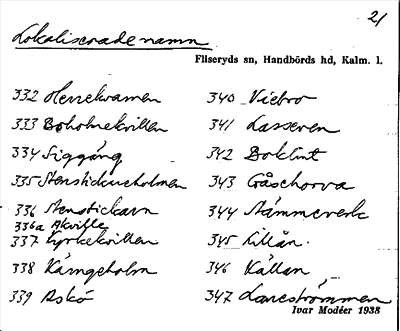 21
Lokaliserade namn
Fliseryds sn, Handbörds hd, Kalm. l.
332 Herrekvarnen
333 Boholmekvillen
334 Siggång
335 Stensticksholmen
336 Stenstickarn
336a Akville
337 Kyrkekvillen
338 Kärngeholm
339 Askö
340 Viebro
341 Lasseren
342 Boklint
343 Gåschorva
344 Stämmeverk
345 Lillån.
346 Källan
347 Laneströmmen
Ivar Modéer 1938